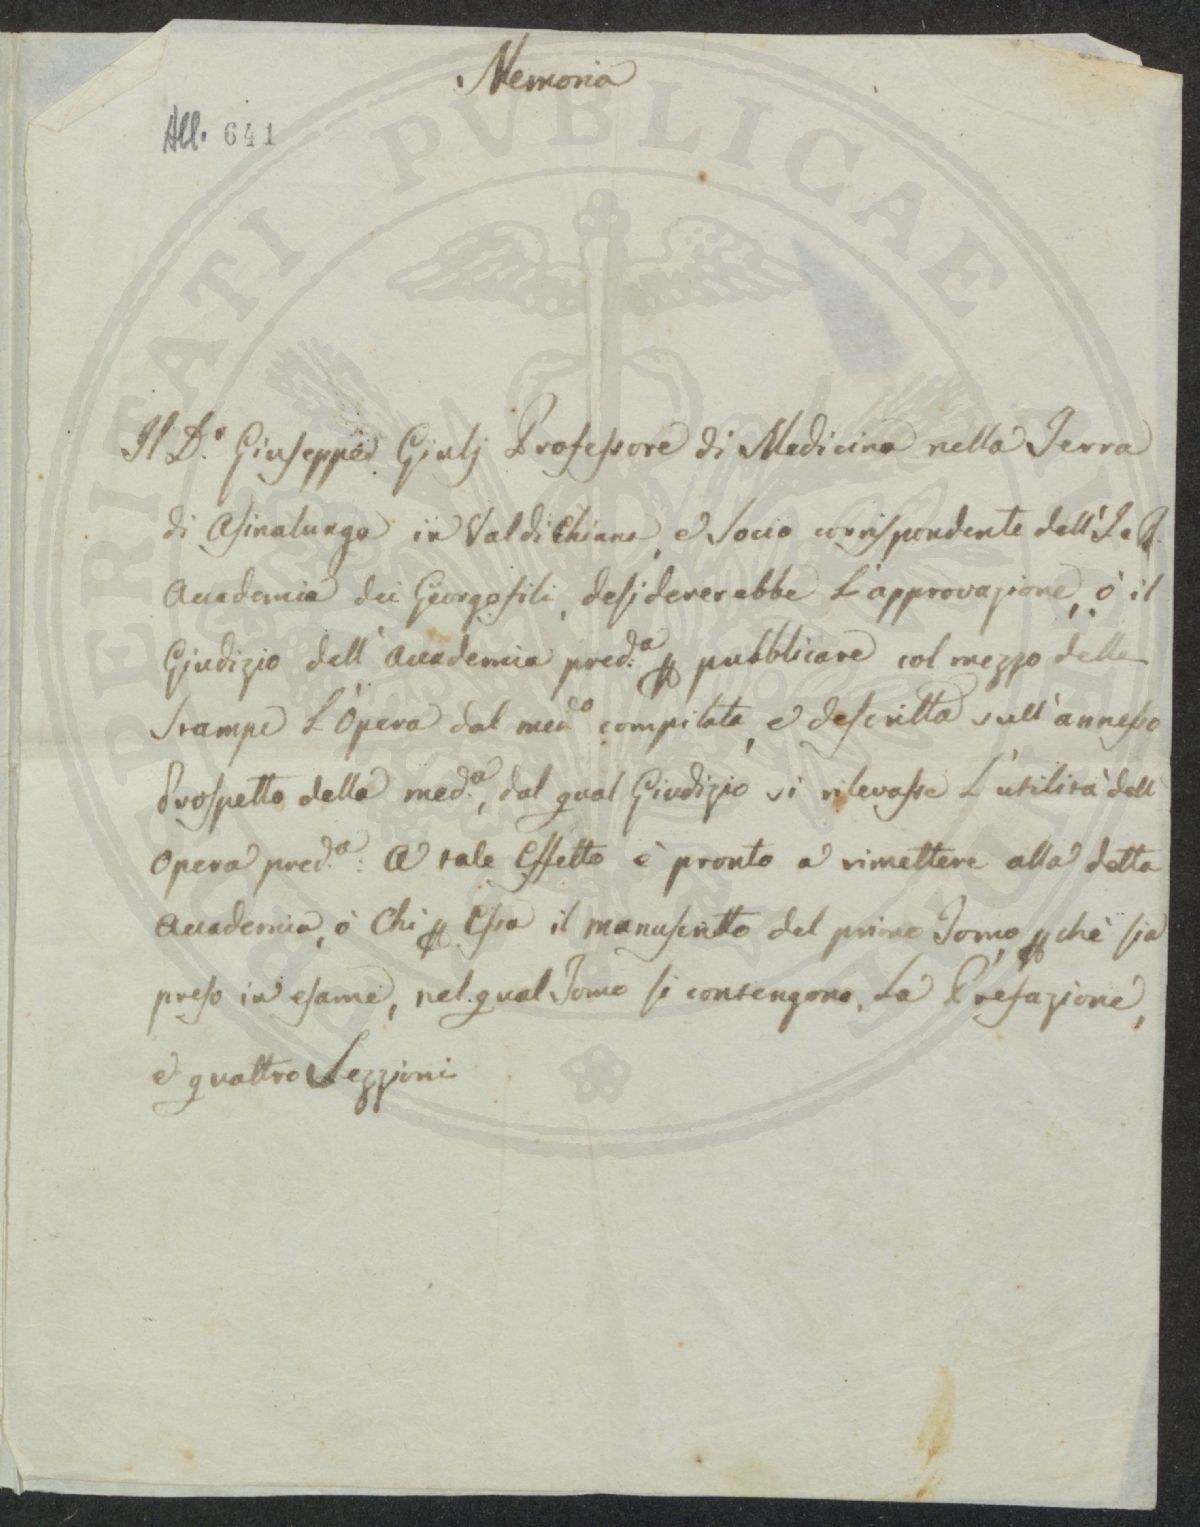 Memoria
All. 641
Il D.r Giuseppe Giulj Professore di Medicina nella Terra
di Asinalunga in Val di Chiana, e Socio corrispondente dell'I. e R.
Accademia dei Georgofili, desidererebbe L'approvazione, ò il
Giudizio dell'Accademia pred.a p pubblicare col mezzo delle
Stampe L'Opera dal med.o compilata, e descritta sull'annesso
Prospetto della med.a, dal qual Giudizio si rilevasse L'utilità dell
Opera pred.a: A tale Effetto è pronto a rimettere alla detta
Accademia, ò Chi p Essa il manuscritto del primo Tomo, p chè sia
preso in esame, nel qual Tomo si contengono La Prefazione,
e quattro Lezzioni
PERITATI PVBLICAE